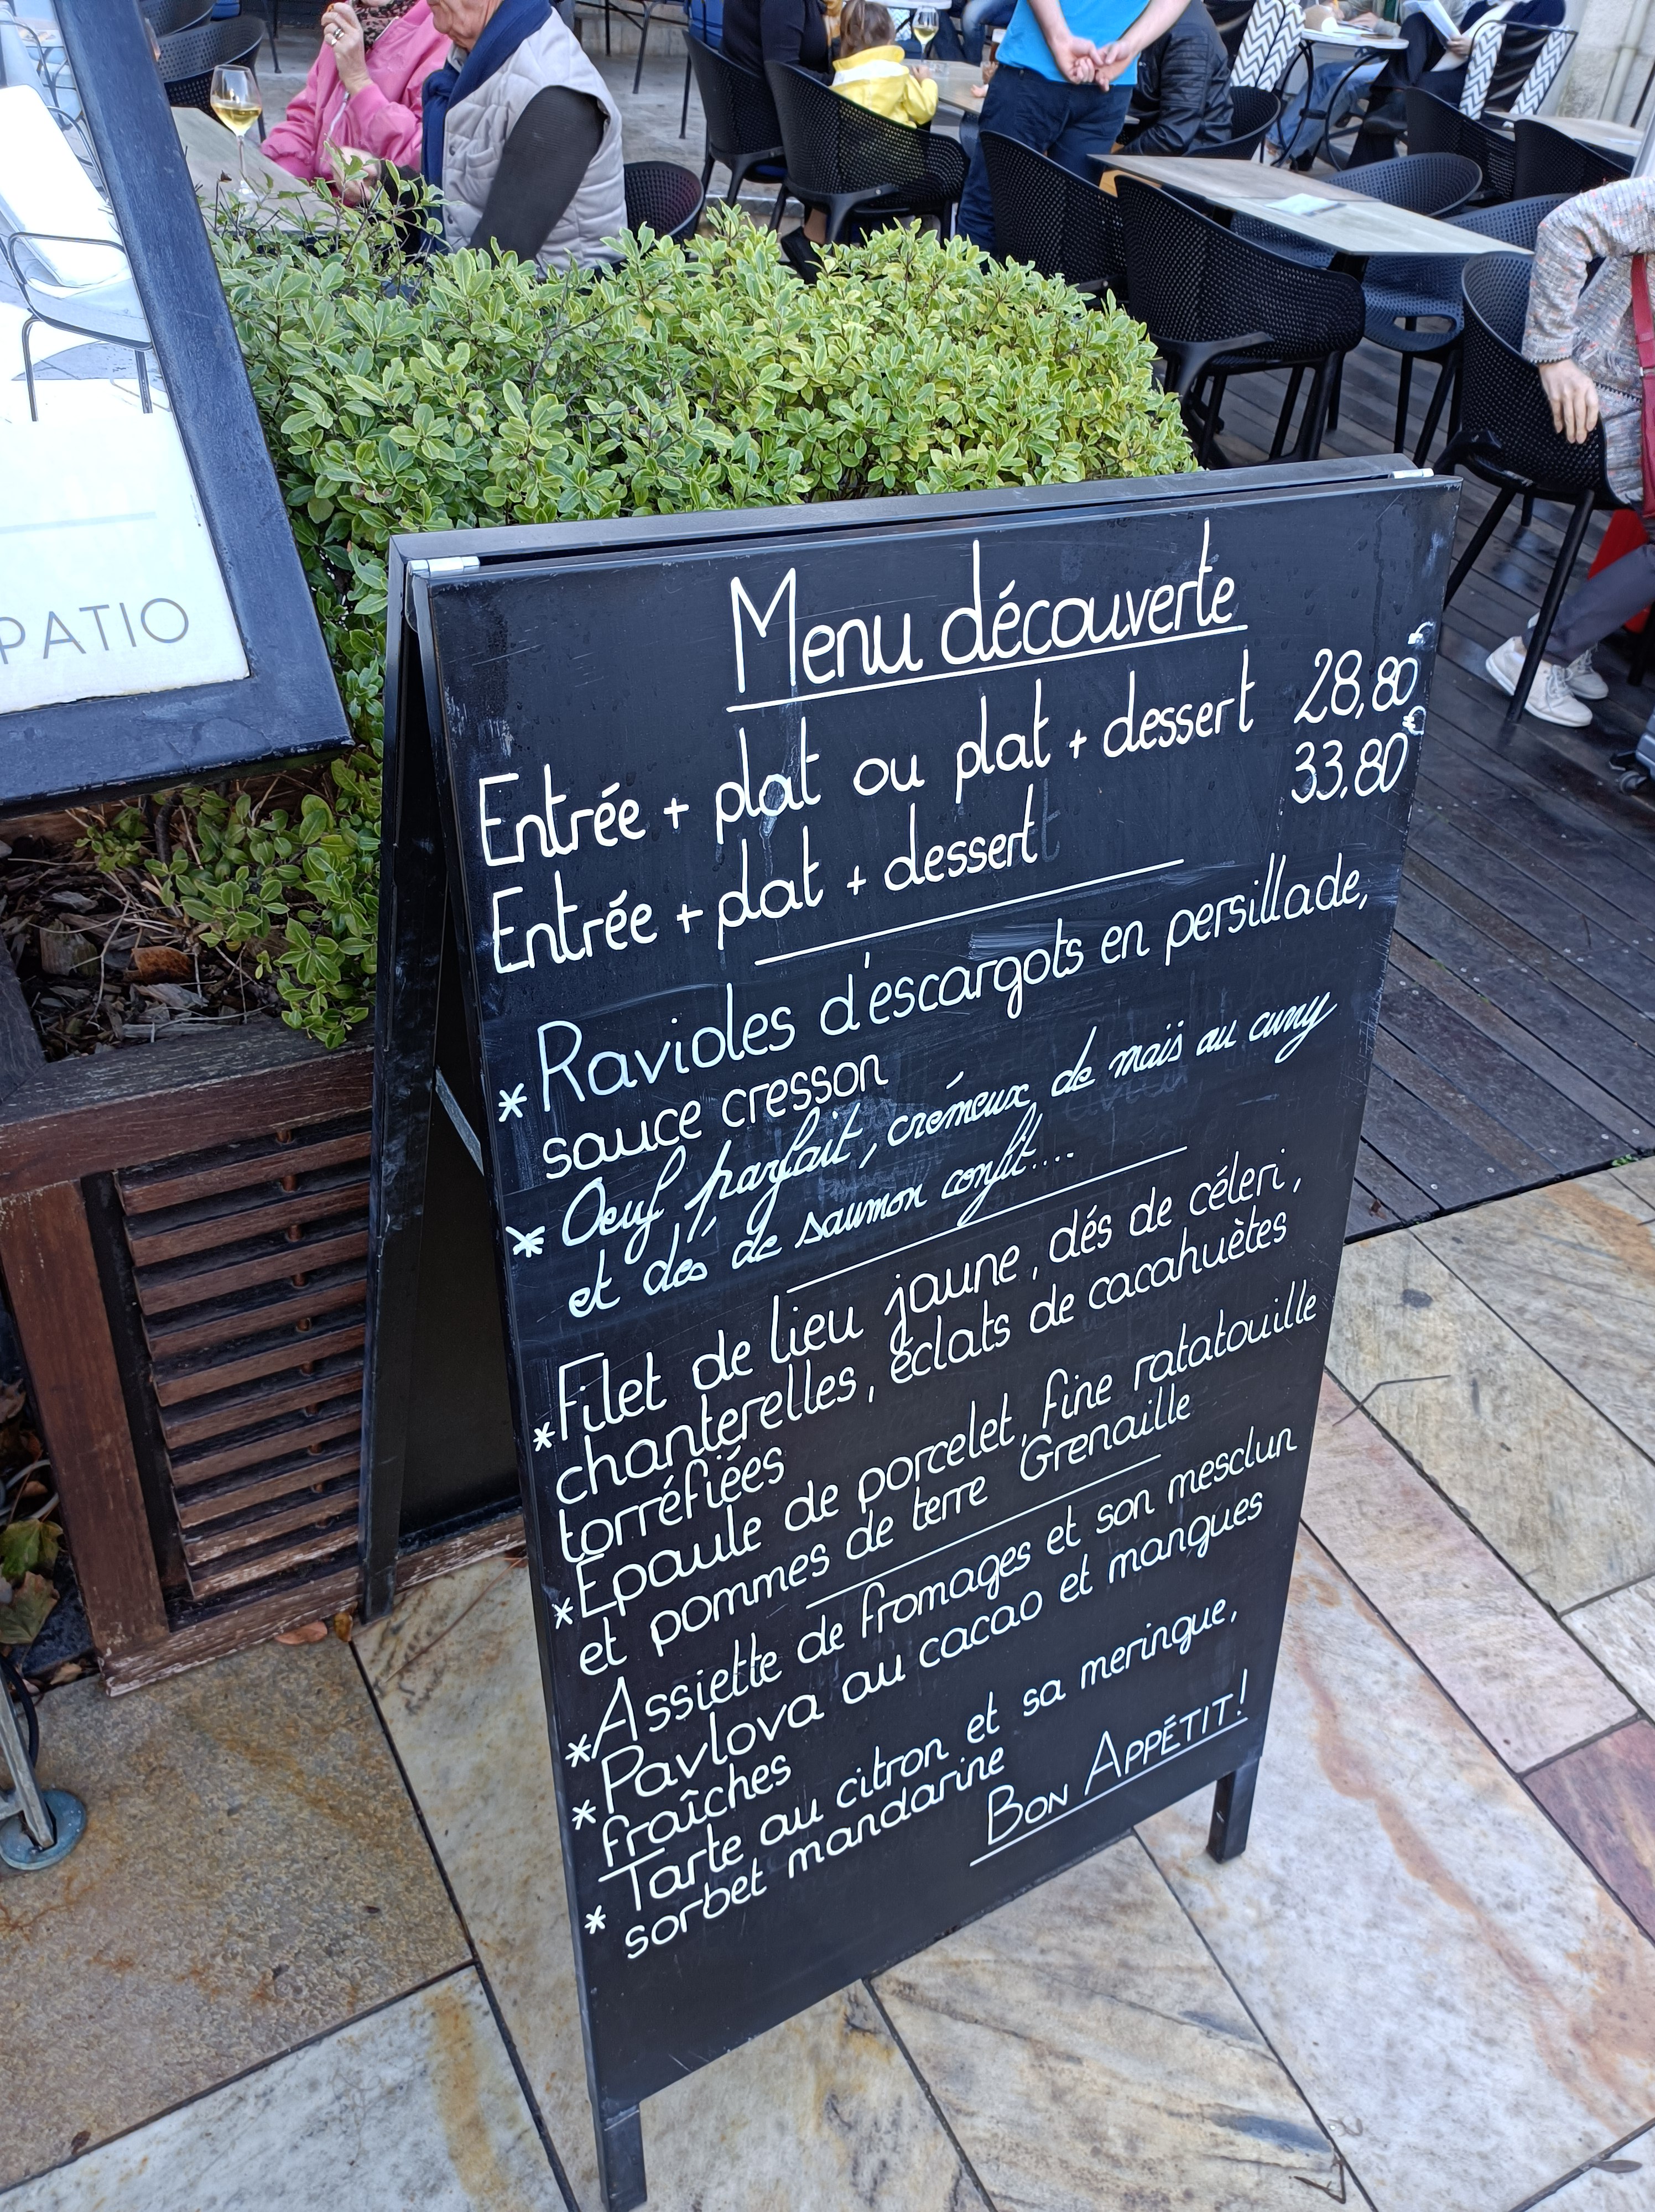 PATIO
Menu découverte
Entrée + plat ou plat + dessert 28,80€
Entrée + plat + dessert 33,80€
* Ravioles d'escargots en persillade,
sauce cresson
* Oeuf parfait, crémeux de maïs au curry
et dés de saumon confit....
* Filet de lieu jaune, dés de céleri,
chanterelles, éclats de cacahuètes
torréfiées
* Epaule de porcelet, fine ratatouille
et pommes de terre Grenaille
* Assiette de fromages et son mesclun
* Pavlova au cacao et mangues
fraîches
* Tarte au citron et sa meringue,
sorbet mandarine
BON APPÉTIT!